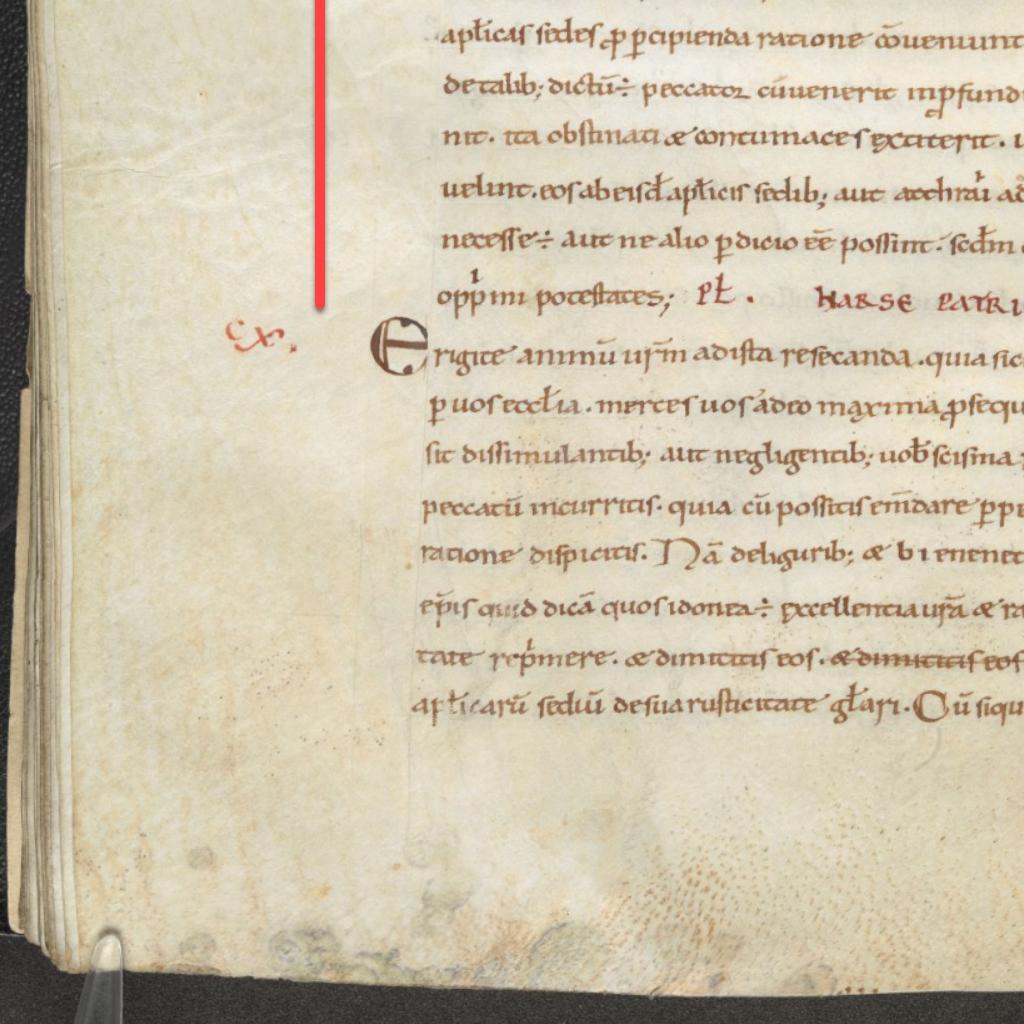 apłicas sedes ꝓ ꝑcipienda ratione cōueniunt
de talib; dictū÷ peccatoꝛ cū uenerit in ꝓfund
nit. ita obstinati & contumaces extiterit.
uelint. eos ab eisđ apłicis sedib; aut
necesse÷ aut ne alio ꝑdicio eē possint. scđm
opp̍mi potestates; pł. NARSE PATRI
cx. Erigite animū ur̄m ad ista resecanda. quia sic
ꝑ uos eccłia. merces uos adeo maxima ꝓsequ
sit dissimulantib; aut negligentib; uob̄ scisma
peccatū incurritis. quia cū possitis em̄dare ꝑpe
ratione dispicitis. Nā de ligurib; &
ep̄is quid dicā quos idonea÷ excellentia ur̄a & ra
tate rep̍mere. & dimittitis eos. & dimittitis eos
apłicarū sediū de sua rusticitate gła̅ri. Cū siqu